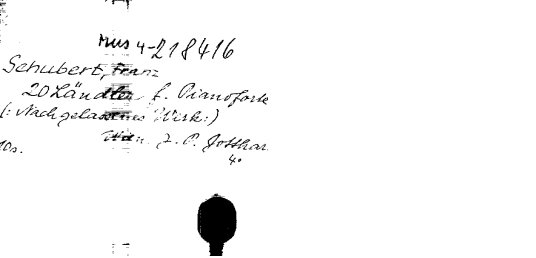 Mus 4-218416
Schubert, Franz
20 Ländler f. Pianoforte
(: Nachgelassenes Werk :)
Wien. J. P. Gotthar
4°